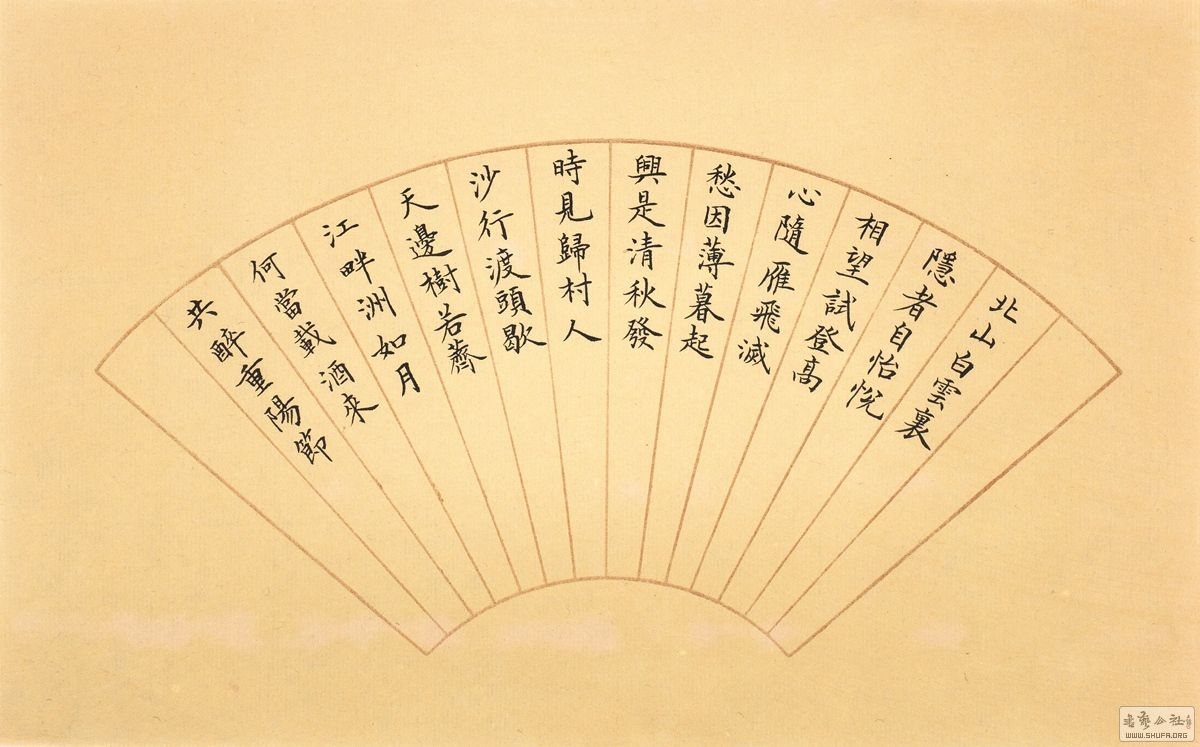 北山白雲裏
隱者自怡悅
相望試登高
心隨雁飛滅
愁因薄暮起
興是清秋發
時見歸村人
沙行渡頭歇
天邊樹若薺
江畔洲如月
何當載酒來
共醉重陽節
WWW.SHUFA.ORG